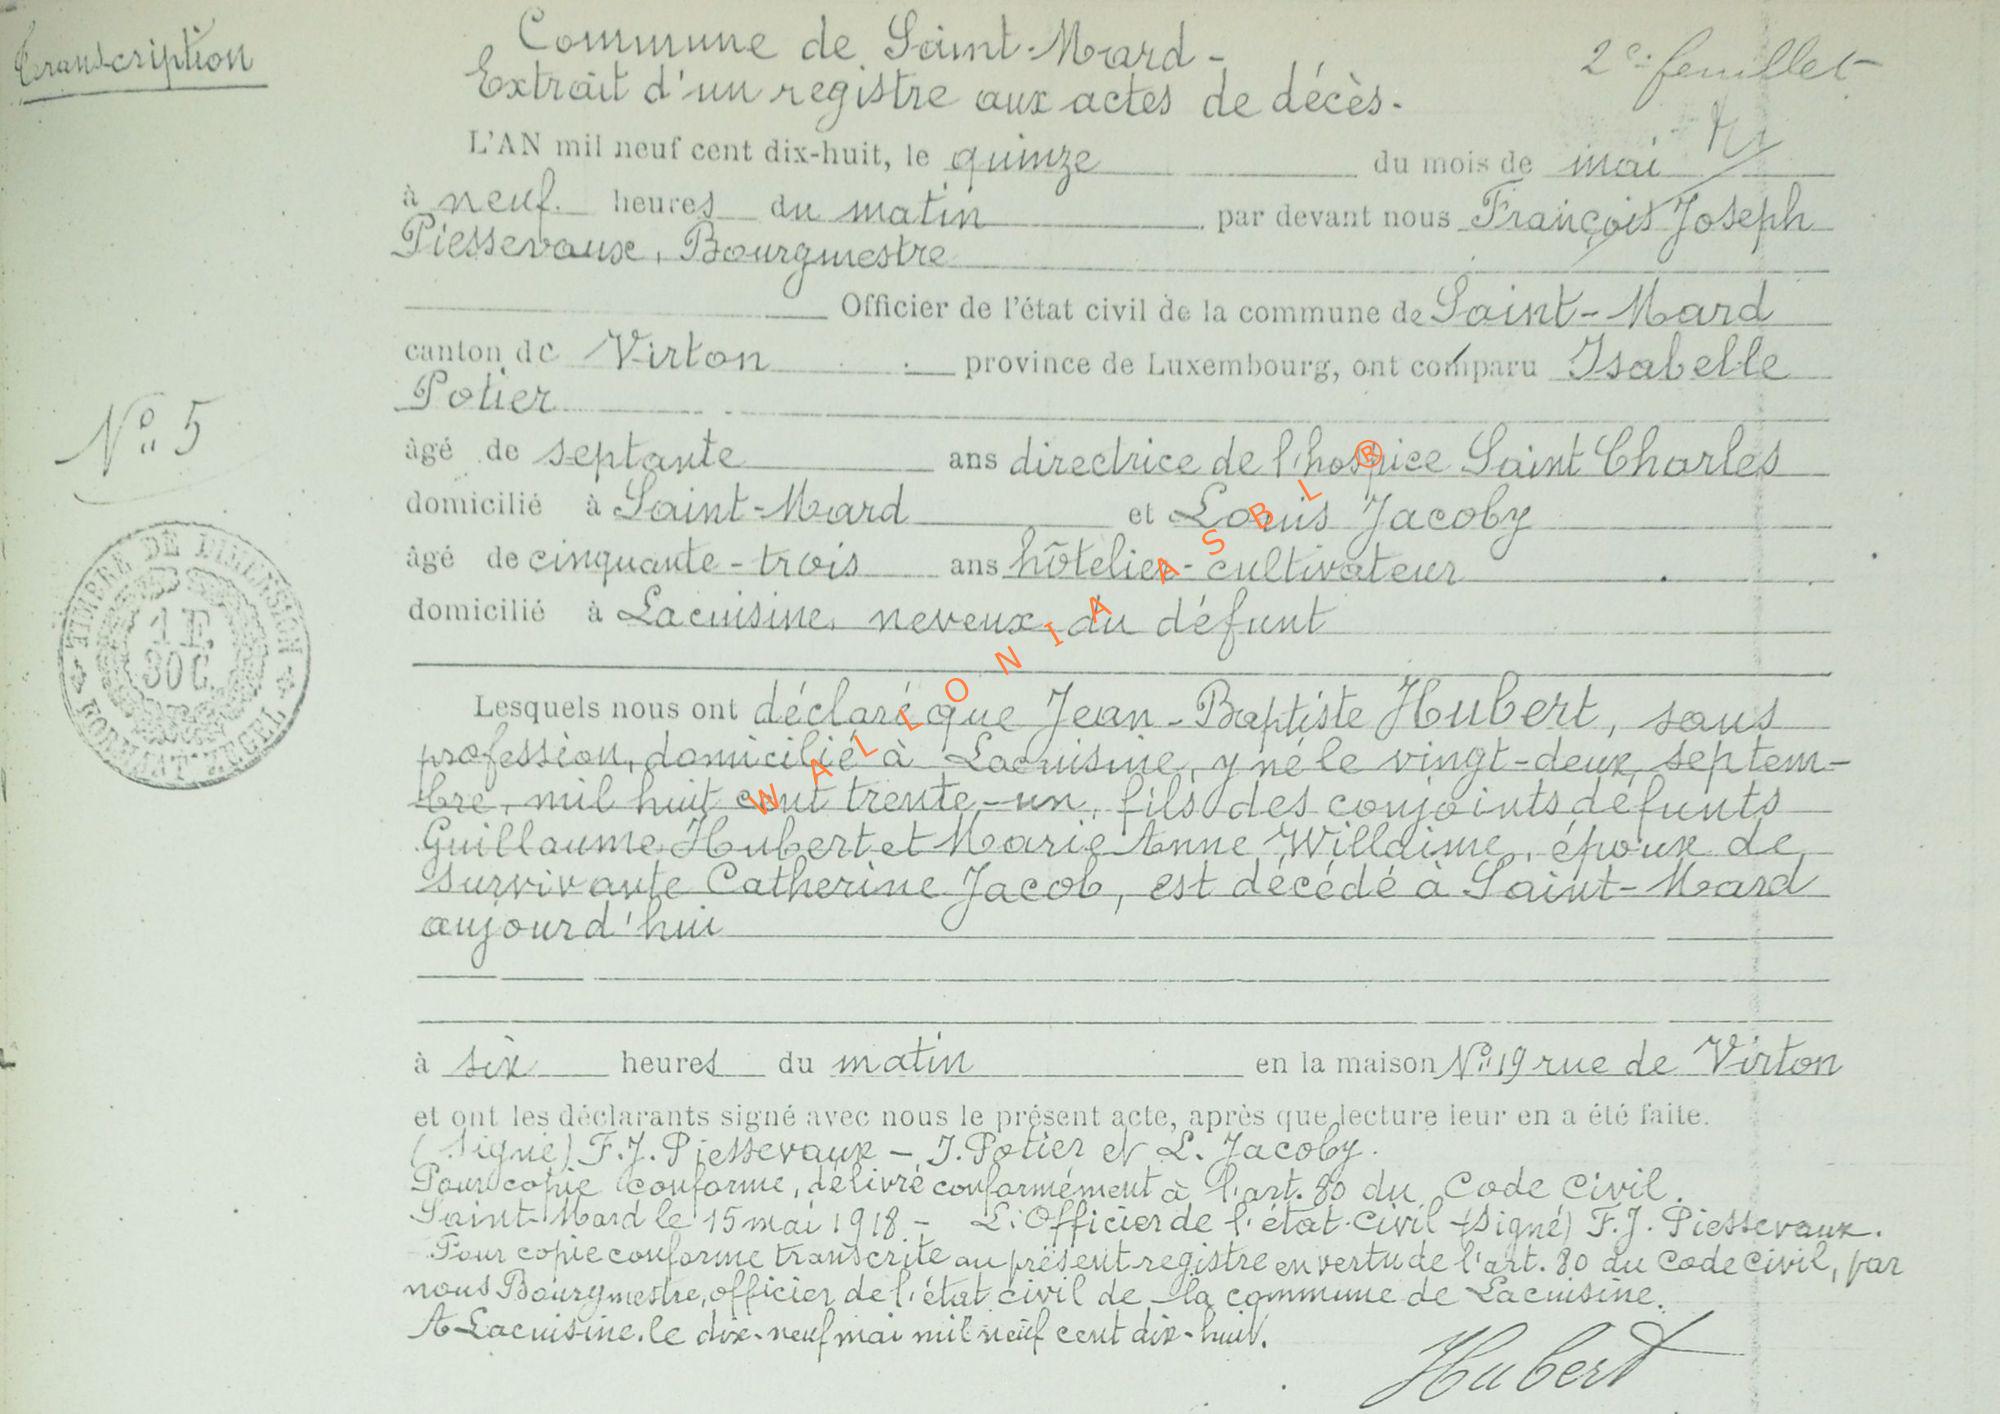 Transcription
Commune de Saint-Mard-
Extrait d'un registre aux actes de décès.
2e feuillet
L'AN mil neuf cent dix-huit, le quinze du mois de mai
à neuf heures du matin par devant nous François Joseph
Piessevaux, Bourgmestre
Officier de l'état civil de la commune de Saint-Mard
canton de Virton province de Luxembourg, ont comparu Isabelle
Potier
âgé de septante ans directrice de l'hospice Saint Charles
domicilié à Saint-Mard et Louis Jacoby
âgé de cinquante-trois ans hôtelier-cultivateur
domicilié à Lacuisine, neveux du défunt
No. 5
TIMBRE DE DIMENSION
1 F.
30 C.
FORMAT ZEGEL
Lesquels nous ont déclaré que Jean-Baptiste Hubert, sans
profession, domicilié à Lacuisine, y né le vingt-deux septem-
bre, mil huit cent trente-un, fils des conjoints défunts
Guillaume Hubert et Marie Anne Willaime, époux de
survivante Catherine Jacob, est décédé à Saint-Mard
aujourd'hui
à six heures du matin en la maison No 19 rue de Virton
et ont les déclarants signé avec nous le présent acte, après que lecture leur en a été faite.
(Signé) F.J. Piessevaux - I. Potier et L. Jacoby.
Pour copie conforme, délivré conformément à l'art. 80 du Code Civil.
Saint-Mard le 15 mai 1918 - L'Officier de l'état-civil (signé) F.J. Piessevaux.
Pour copie conforme transcrite au présent registre en vertu de l'art. 80 du Code civil, par
nous Bourgmestre, officier de l'état civil de la commune de Lacuisine.
A Lacuisine, le dix-neuf mai mil neuf cent dix-huit.
Hubert
WALLONIA ASBL ®